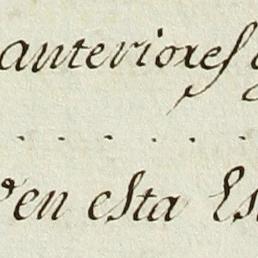 anteriores
. . . . .
en esta Es